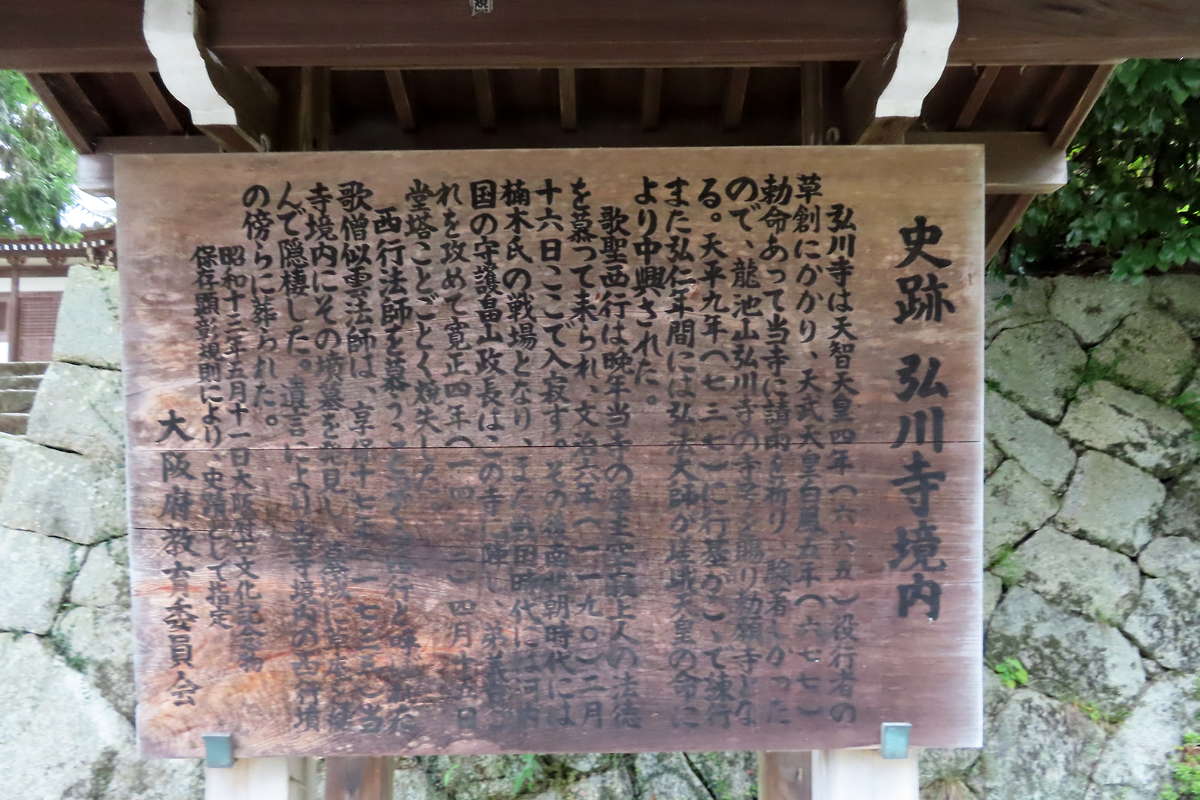 史跡 弘川寺境内
弘川寺は天智天皇四年(六六五)役行者の
草創にかかり、天武天皇白鳳五年(六七七)
勅命あって当寺に請雨を祈り、験著しかった
ので、龍池山弘川寺の寺号を賜り勅願寺とな
る。天平九年(七三七)に行基がここで練行
また弘仁年間には弘法大師が嵯峨天皇の命に
より中興された。
歌聖西行は晩年当寺の座主空寂上人の法徳
を慕って来られ、文治六年(一一九〇)二月
十六日ここで入寂す。その後南北朝時代には
楠木氏の戦場となり、また戦国時代には河内
国の守護畠山政長はこの寺に陣し、弟義就
れを攻めて寛正四年(一四六三)四月十五日
堂塔ことごとく焼失した
西行法師を慕って 行と
歌僧似雲法師は、享保十七年(一七三二)当
寺境内にその墳墓を発見し、草庵を
んで隠棲した。遺言により当寺境内の古墳
の傍らに葬られた。
昭和十三年五月十一日大阪府文化財
保存顕彰規則により、史蹟として指定
大阪府教育委員会